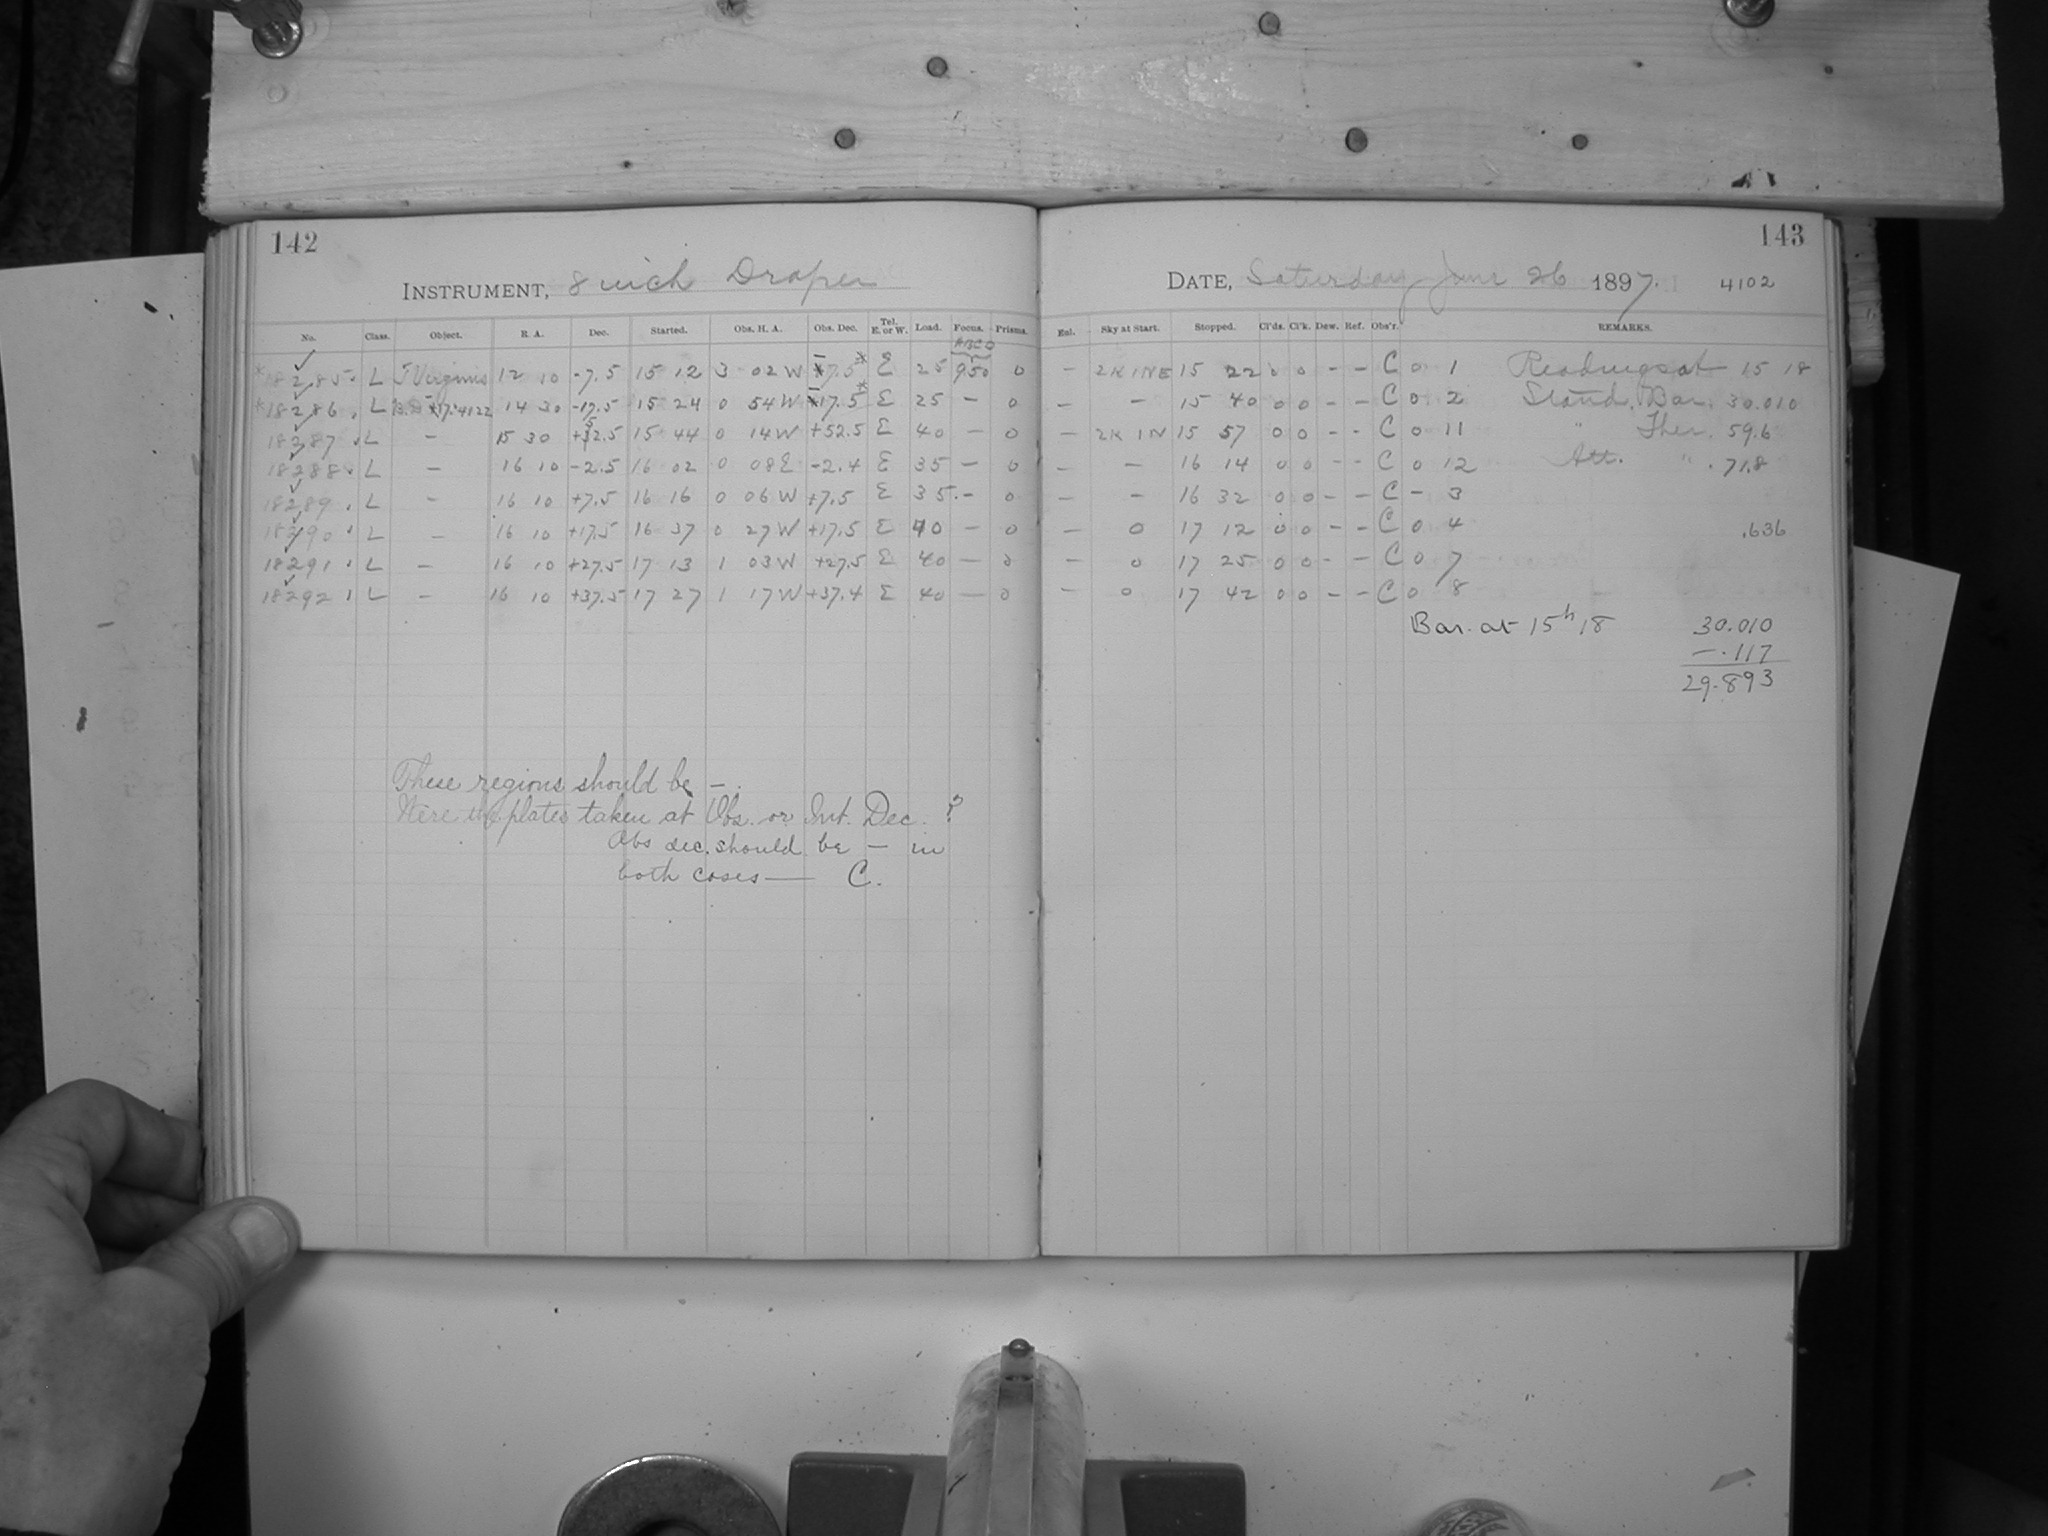 142
INSTRUMENT, 8 inch Draper
No. Class. Object. R. A. Dec. Started. Obs. H. A. Obs. Dec. Tel. E. or W. Load. Focus. Prisms.
ABCD
*18285. L T Virginis 12 10 -7.5 15 12 3 02 W -7.5* E 25 950 0
*18286. L -17.4122 14 30 -17.5 15 24 0 54 W -17.5* E 25 - 0
18287. L - 15 30 +52.5 15 44 0 14 W +52.5 E 40 - 0
18288. L - 16 10 -2.5 16 02 0 08 E -2.4 E 35 - 0
18289. L - 16 10 +7.5 16 16 0 06 W +7.5 E 35 - 0
18290. L - 16 10 +17.5 16 37 0 27 W +17.5 E 40 - 0
18291. L - 16 10 +27.5 17 13 1 03 W +27.5 E 40 - 0
18292. L - 16 10 +37.5 17 27 1 17 W +37.4 E 40 - 0
These regions should be -.
Were the plates taken at Obs. or Int. Dec. ?
Obs dec. should be - in
both cases — C.
143
DATE, Saturday June 26 1897. 4102
Enl. Sky at Start. Stopped. Cl'ds. Cl'k. Dew. Ref. Obs'r. REMARKS.
- 2K INE 15 22 0 0 - - C 0 1 Readings at 15 18
- - 15 40 0 0 - - C 0 2 Stand. Bar. 30.010
- 2K IN 15 57 0 0 - - C 0 11 " Ther. 59.6
- - 16 14 0 0 - - C 0 12 Att. " . 71.8
- - 16 32 0 0 - - C - 3
- 0 17 12 0 0 - - C 0 4 .636
- 0 17 25 0 0 - - C 0 7
- 0 17 42 0 0 - - C 0 8
Bar. at 15h 18 30.010
-.117
29.893